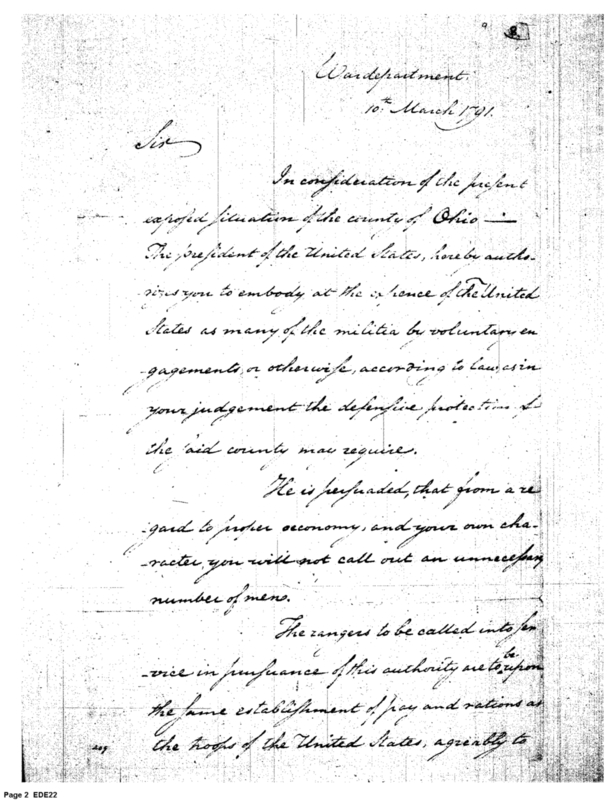 8
Wardepartment.
10th March 1791.
Sir
In consideration of the present
exposed situation of the county of Ohio —
The president of the United States, hereby autho-
rizes you to embody at the expence of the United
States as many of the militia by voluntary en
gagements, or otherwise, according to law, as in
your judgement the defensive protection of
the said county may require.
He is persuaded, that from a re
gard to proper oeconomy, and your own cha-
racter, you will not call out an unnecessary
number of men.
The rangers to be called into ser
-vice in pursuance of this authority are to be upon
the same establishment of pay and rations as
the troops of the United States, agreably to
Page 2 EDE22